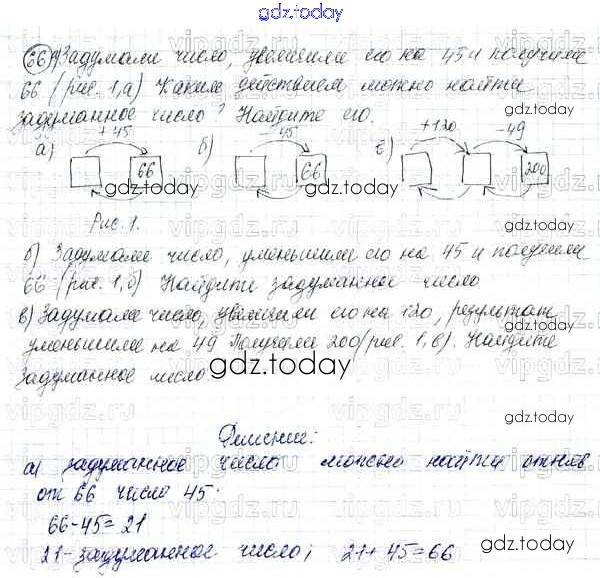 gdz.today
36 а) Задумали число, увеличили его на 45 и получили
66 (рис. 1, а) Каким действием можно найти
задуманное число? Найдите его.
gdz.today
+45 -45 +120 -49
а) 66 б) 66 в) 200
gdz.today gdz.today gdz.today
Рис. 1.
б) Задумали число, уменьшили его на 45 и получили
66 (рис. 1, б) Найдите задуманное число
в) Задумали число, увеличили его на 120, результат
уменьшили на 49 Получили 200 (рис. 1, в). Найдите
задуманное число.
gdz.today
gdz.today
Решение:
а) задуманное число можно найти отняв
от 66 число 45.
gdz.today
66-45=21
21- задуманное число; 21+45=66
gdz.today